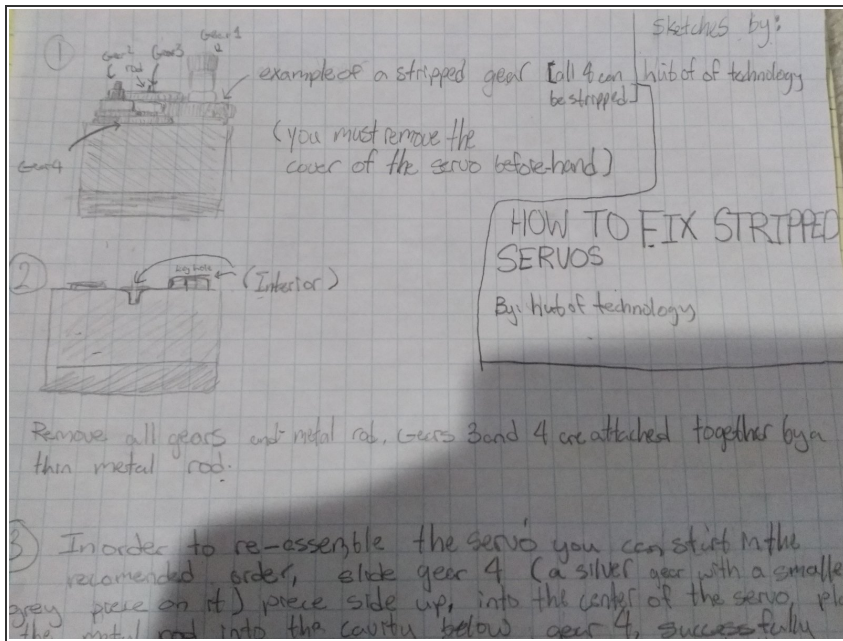 sketches by:
hub of of technology
①
Gear 1
Gear 2
rod
Gear3
Gear4
example of a stripped gear [all 4 can
be stripped]
(you must remove the
cover of the servo before-hand)
HOW TO FIX STRIPPED
SERVOS
By: hub of technology
②
(Interior)
Remove all gears and metal rod. Gears 3 and 4 are attached together by a
thin metal rod.
③ In order to re-assemble the servo you can start in the
recomended order, slide gear 4 (a silver gear with a smalle
grey piece on it) piece side up, into the center of the servo, pla
the metal rod into the cavity below gear 4, successfully